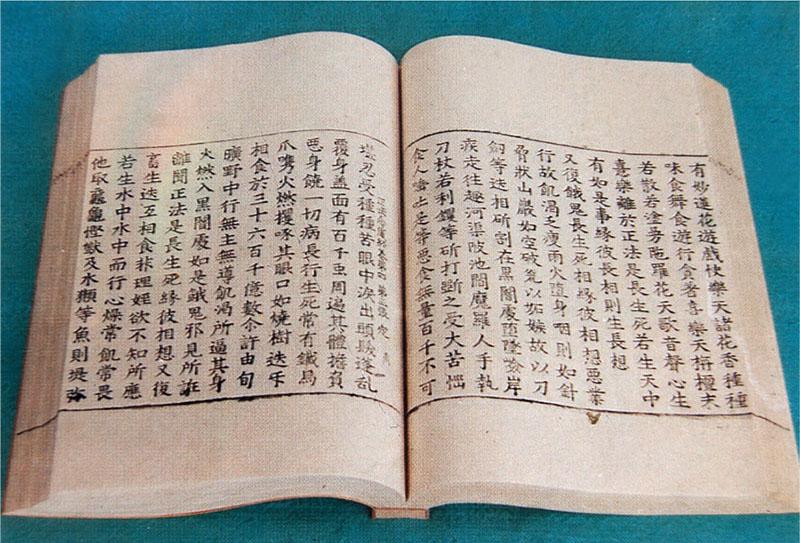 有妙蓮花遊戲快樂天諸花香種種
味食舞食遊行食著喜樂天栴檀末
若散若塗曼陁羅花天歌音聲心生
喜樂離於正法是長生死若生天中
有如是事緣彼長相則生長想
又復餓鬼長生死相緣彼相想惡業
行故飢渴之瘦雨火墮身咽則如針
脅狀山巖如空破瓮以妬嫉故以刀
劒等迭相斫割在黑闇處墮墜嶮岸
疾走往趣河渠陂池閻魔羅人手執
刀杖若利钁等斫打斷之受大苦惱
食人嗆吐是等惡食無量百千不可
堪忍受種種苦眼中淚出頭髮逢乱
覆身盖面有百千虫周遍其體擔負
惡身饒一切病長行生死常有鐵烏
爪火燃攫啄其眼口如燒樹迭乎
相食於三十六百千億數尒許由旬
曠野中行無主無導飢渴所逼其身
火燃入黑闇處如是餓鬼邪見所誑
離聞正法是長生死緣彼相想又復
畜生迭互相食非理婬欲不知所應
若生水中水中而行心燥常飢常畏
他取龜鼉慳獸及水獺等魚則堤弥